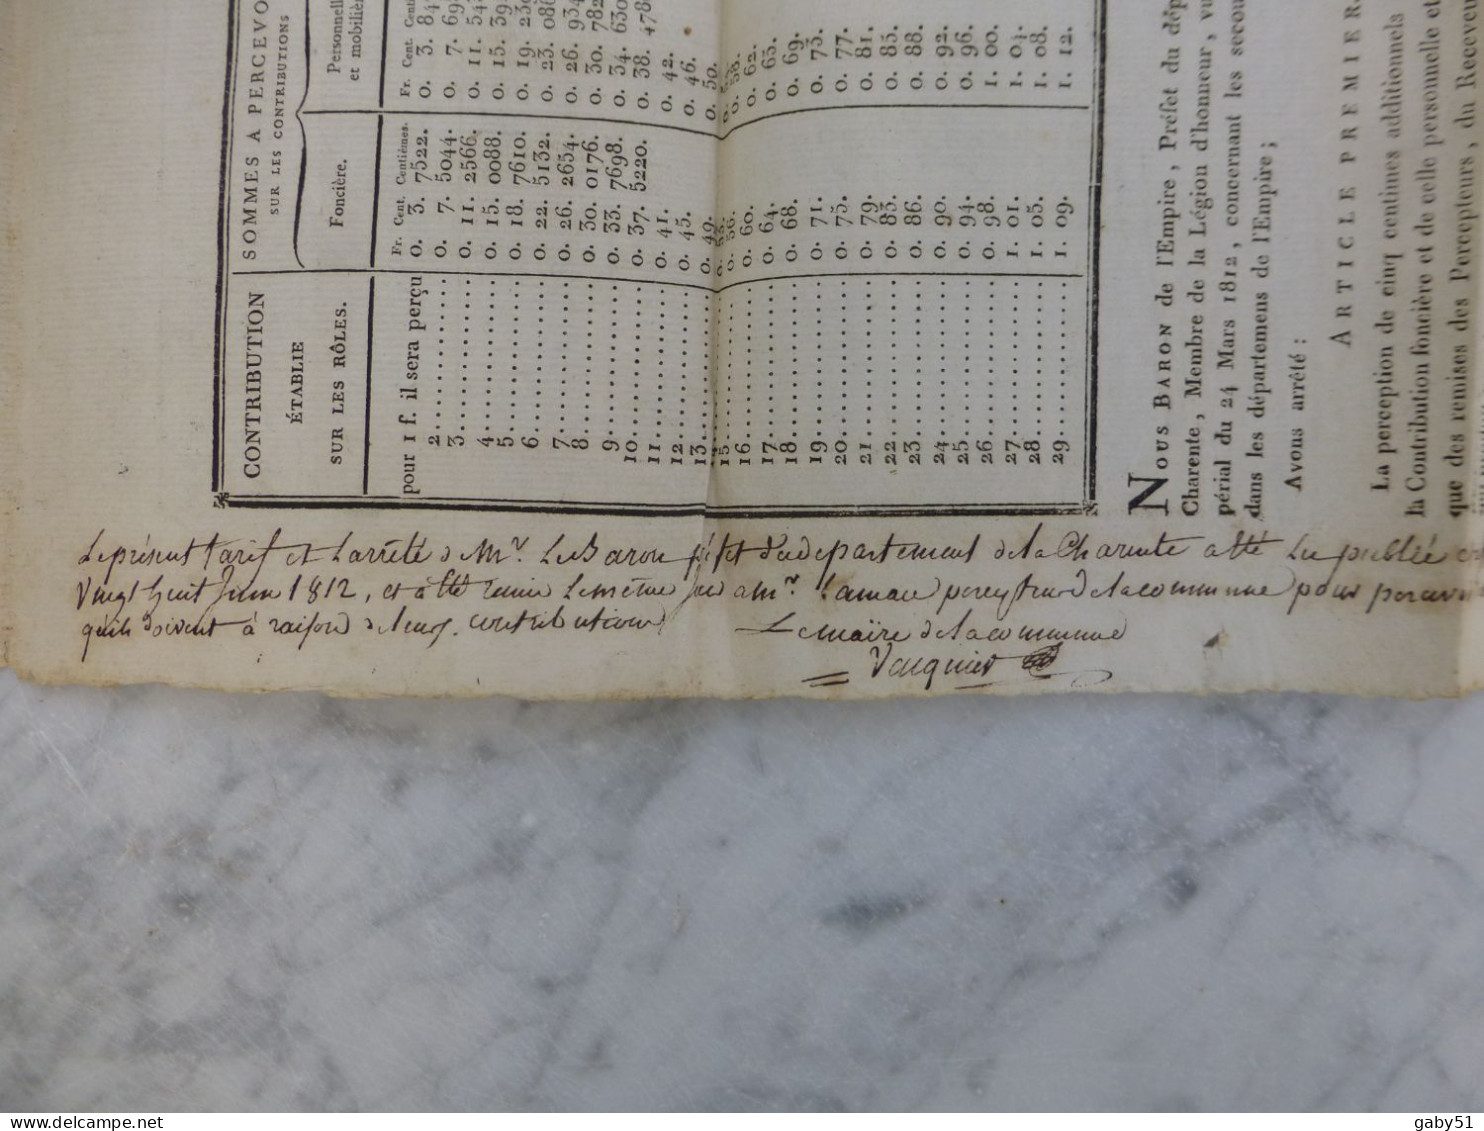 CONTRIBUTION
ÉTABLIE
SUR LES RÔLES.
SOMMES A PERCEVO
SUR LES CONTRIBUTIONS
Foncière.
Personnelle
et mobilière
Fr. Cent. Centièmes. Fr. Cent. Centi
pour 1 f. il sera perçu 0. 3. 7522. 0. 3. 84
2 0. 7. 5044. 0. 7. 69
3 0. 11. 2566. 0. 11. 54
4 0. 15. 0088. 0. 15. 39
5 0. 18. 7610. 0. 19. 23
6 0. 22. 5132. 0. 23. 08
7 0. 26. 2654. 0. 26. 934
8 0. 30. 0176. 0. 30. 782
9 0. 33. 7698. 0. 34. 630
10 0. 37. 5220. 0. 38. 478
11 0. 41. 0. 42.
12 0. 45. 0. 46.
13 0. 49. 0. 50.
15 0. 56. 0. 58.
16 0. 60. 0. 62.
17 0. 64. 0. 65.
18 0. 68. 0. 69.
19 0. 71. 0. 73.
20 0. 75. 0. 77.
21 0. 79. 0. 81.
22 0. 83. 0. 85.
23 0. 86. 0. 88.
24 0. 90. 0. 92.
25 0. 94. 0. 96.
26 0. 98. 1. 00.
27 1. 01. 1. 04.
28 1. 05. 1. 08.
29 1. 09. 1. 12.
NOUS BARON de l'Empire, Préfet du dép
Charente, Membre de la Légion d'honneur, vu
périal du 24 Mars 1812, concernant les secou
dans les départemens de l'Empire;
Avons arrêté:
ARTICLE PREMIER.
La perception de cinq centimes additionnels
la Contribution foncière et de celle personnelle et
que des remises des Percepteurs, du Receveu
Le présent tarif et L'arrêté de Mr. Le Baron préfet du departement de la Charente a été Lu publiée
Vingt huit Juin 1812, et a été remis Le même Jour a Mr. percepteur de la commune pour
quils doivent à raison de leurs contributions
Le maire de la commune
Vauquier
delcampe.net
gaby51